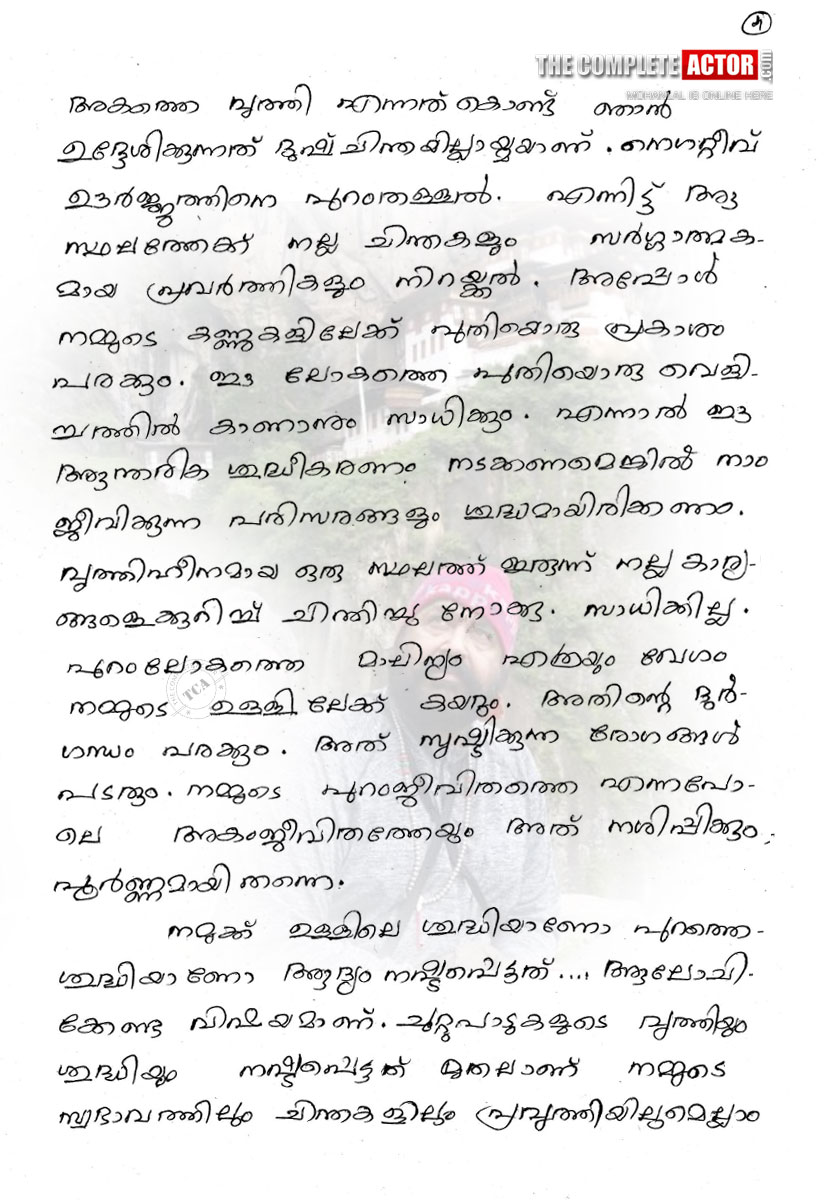 THE COMPLETE ACTOR .COM
MOHANLAL IS ONLINE HERE
അകത്തെ വൃത്തി എന്നത് കൊണ്ട് ഞാൻ
ഉദ്ദേശിക്കുന്നത് ദുഷ്ചിന്തയില്ലായ്മയാണ്. നെഗറ്റീവ്
ഊർജ്ജത്തിനെ പുറംതള്ളൽ. എന്നിട്ട് ആ
സ്ഥലത്തേക്ക് നല്ല ചിന്തകളും സർഗ്ഗാത്മക-
മായ പ്രവർത്തികളും നിറയ്ക്കൽ. അപ്പോൾ
നമ്മുടെ കണ്ണുകളിലേക്ക് പുതിയൊരു പ്രകാശം
പരക്കും. ഈ ലോകത്തെ പുതിയൊരു വെളി-
ച്ചത്തിൽ കാണാനും സാധിക്കും. എന്നാൽ ഈ
ആന്തരിക ശുദ്ധീകരണം നടക്കണമെങ്കിൽ നാം
ജീവിക്കുന്ന പരിസരങ്ങളും ശുദ്ധമായിരിക്കണം.
വൃത്തിഹീനമായ ഒരു സ്ഥലത്ത് ഇരുന്ന് നല്ല കാര്യ-
ങ്ങളെക്കുറിച്ച് ചിന്തിച്ചു നോക്കൂ. സാധിക്കില്ല.
പുറംലോകത്തെ മാലിന്യം എത്രയും വേഗം
നമ്മുടെ ഉള്ളിലേക്ക് കയറും. അതിന്റെ ദുർ-
ഗന്ധം പരക്കും. അത് സൃഷ്ടിക്കുന്ന രോഗങ്ങൾ
പടരും. നമ്മുടെ പുറംജീവിതത്തെ എന്നപോ-
ലെ അകംജീവിതത്തേയും അത് നശിപ്പിക്കും.
പൂർണ്ണമായി തന്നെ.
നമുക്ക് ഉള്ളിലെ ശുദ്ധിയാണോ പുറത്തെ-
ശുദ്ധിയാണോ ആദ്യം നഷ്ടപ്പെട്ടത് .... ആലോചി-
ക്കേണ്ട വിഷയമാണ്. ചുറ്റുപാടുകളുടെ വൃത്തിയും
ശുദ്ധിയും നഷ്ടപ്പെട്ടത് മുതലാണ് നമ്മുടെ
സ്വഭാവത്തിലും ചിന്തകളിലും പ്രവൃത്തിയിലുമെല്ലാം